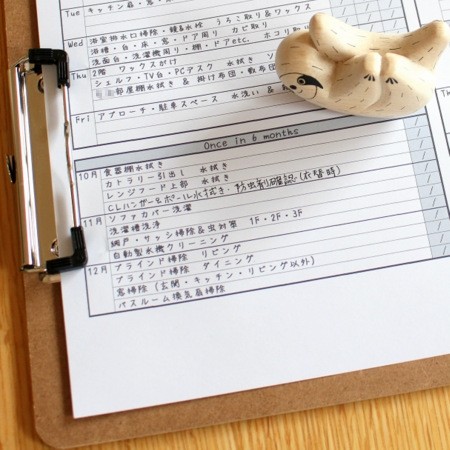 Tue キッチン 窓
Wed 浴室排水口掃除・鏡&水栓 うろこ取り&ワックス
浴槽・台・床・窓・ドア周り カビ取り
洗面台・洗濯機周り・棚・ドアetc. ホコリ取り
Thu 2階 ワックスがけ
シェルフ・TV台・PCアスク 水拭き
部屋棚水拭き & 掛け布団・敷布団
Fri アプローチ・駐車スペース 水洗い &
Once in 6 months
10月 食器棚水拭き
カトラリー引出し 水拭き
レンジフード上部 水拭き
CLハンガー&ポール水拭き・防虫剤確認(衣替時)
11月 ソファカバー洗濯
洗濯槽洗浄
網戸・サッシ掃除&虫対策 1F・2F・3F
自動製氷機クリーニング
12月 ブラインド掃除 リビング
ブラインド掃除 ダイニング
窓掃除(玄関・キッチン・リビング以外)
バスルーム換気扇掃除